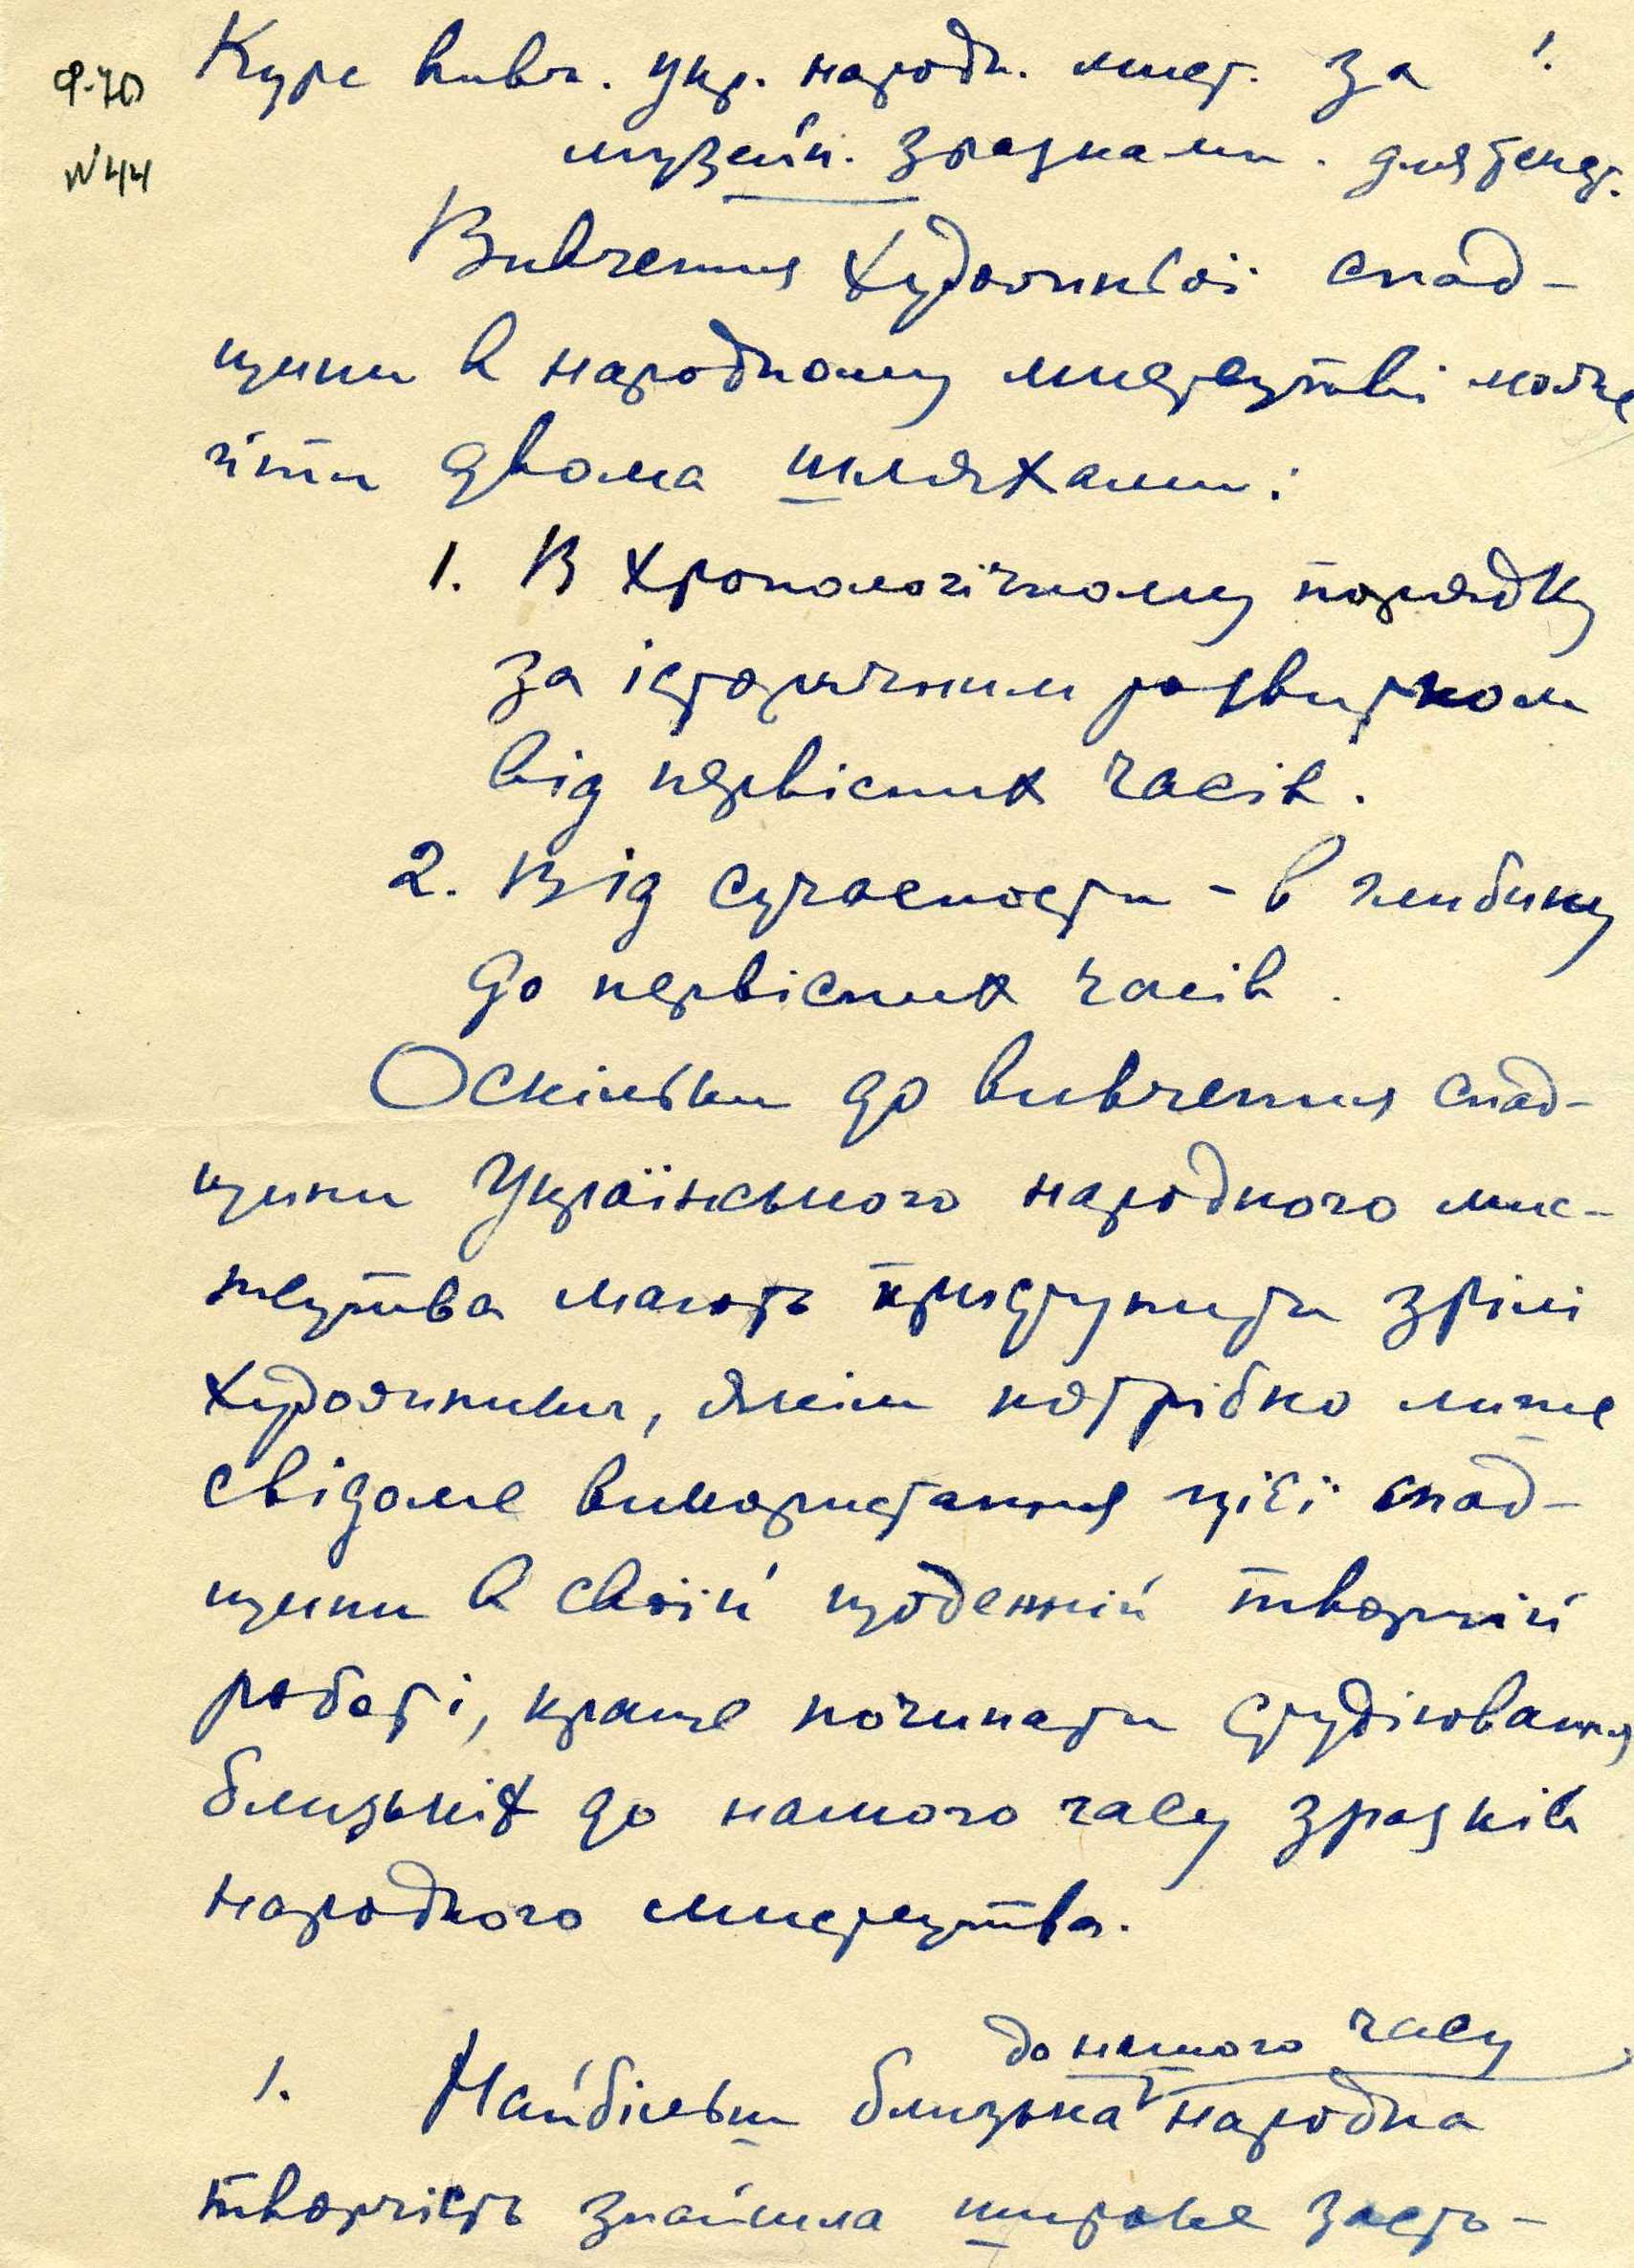 Ф-70
№44
Курс вивч. укр. народн. мист. за 1.
музейн. зразками. для
Вивчення художньої спад-
щини в народному мистецтві може
іти двома шляхами:
1. В хронологічному порядку
за історичним розвитком
від первісних часів.
2. Від сучасности - в глибину
до первісних часів.
Оскільки до вивчення спад-
щини Українського народного мис-
тецтва мають приступити зрілі
художники, яким потрібно лише
свідоме використання цієї спад-
щини в своїй щоденній творчій
роботі, краще починати студіювання
близьких до нашого часу зразків
народного мистецтва.
до нашого часу
1. Найбільш близька народна
творчість знайшла широке засто-